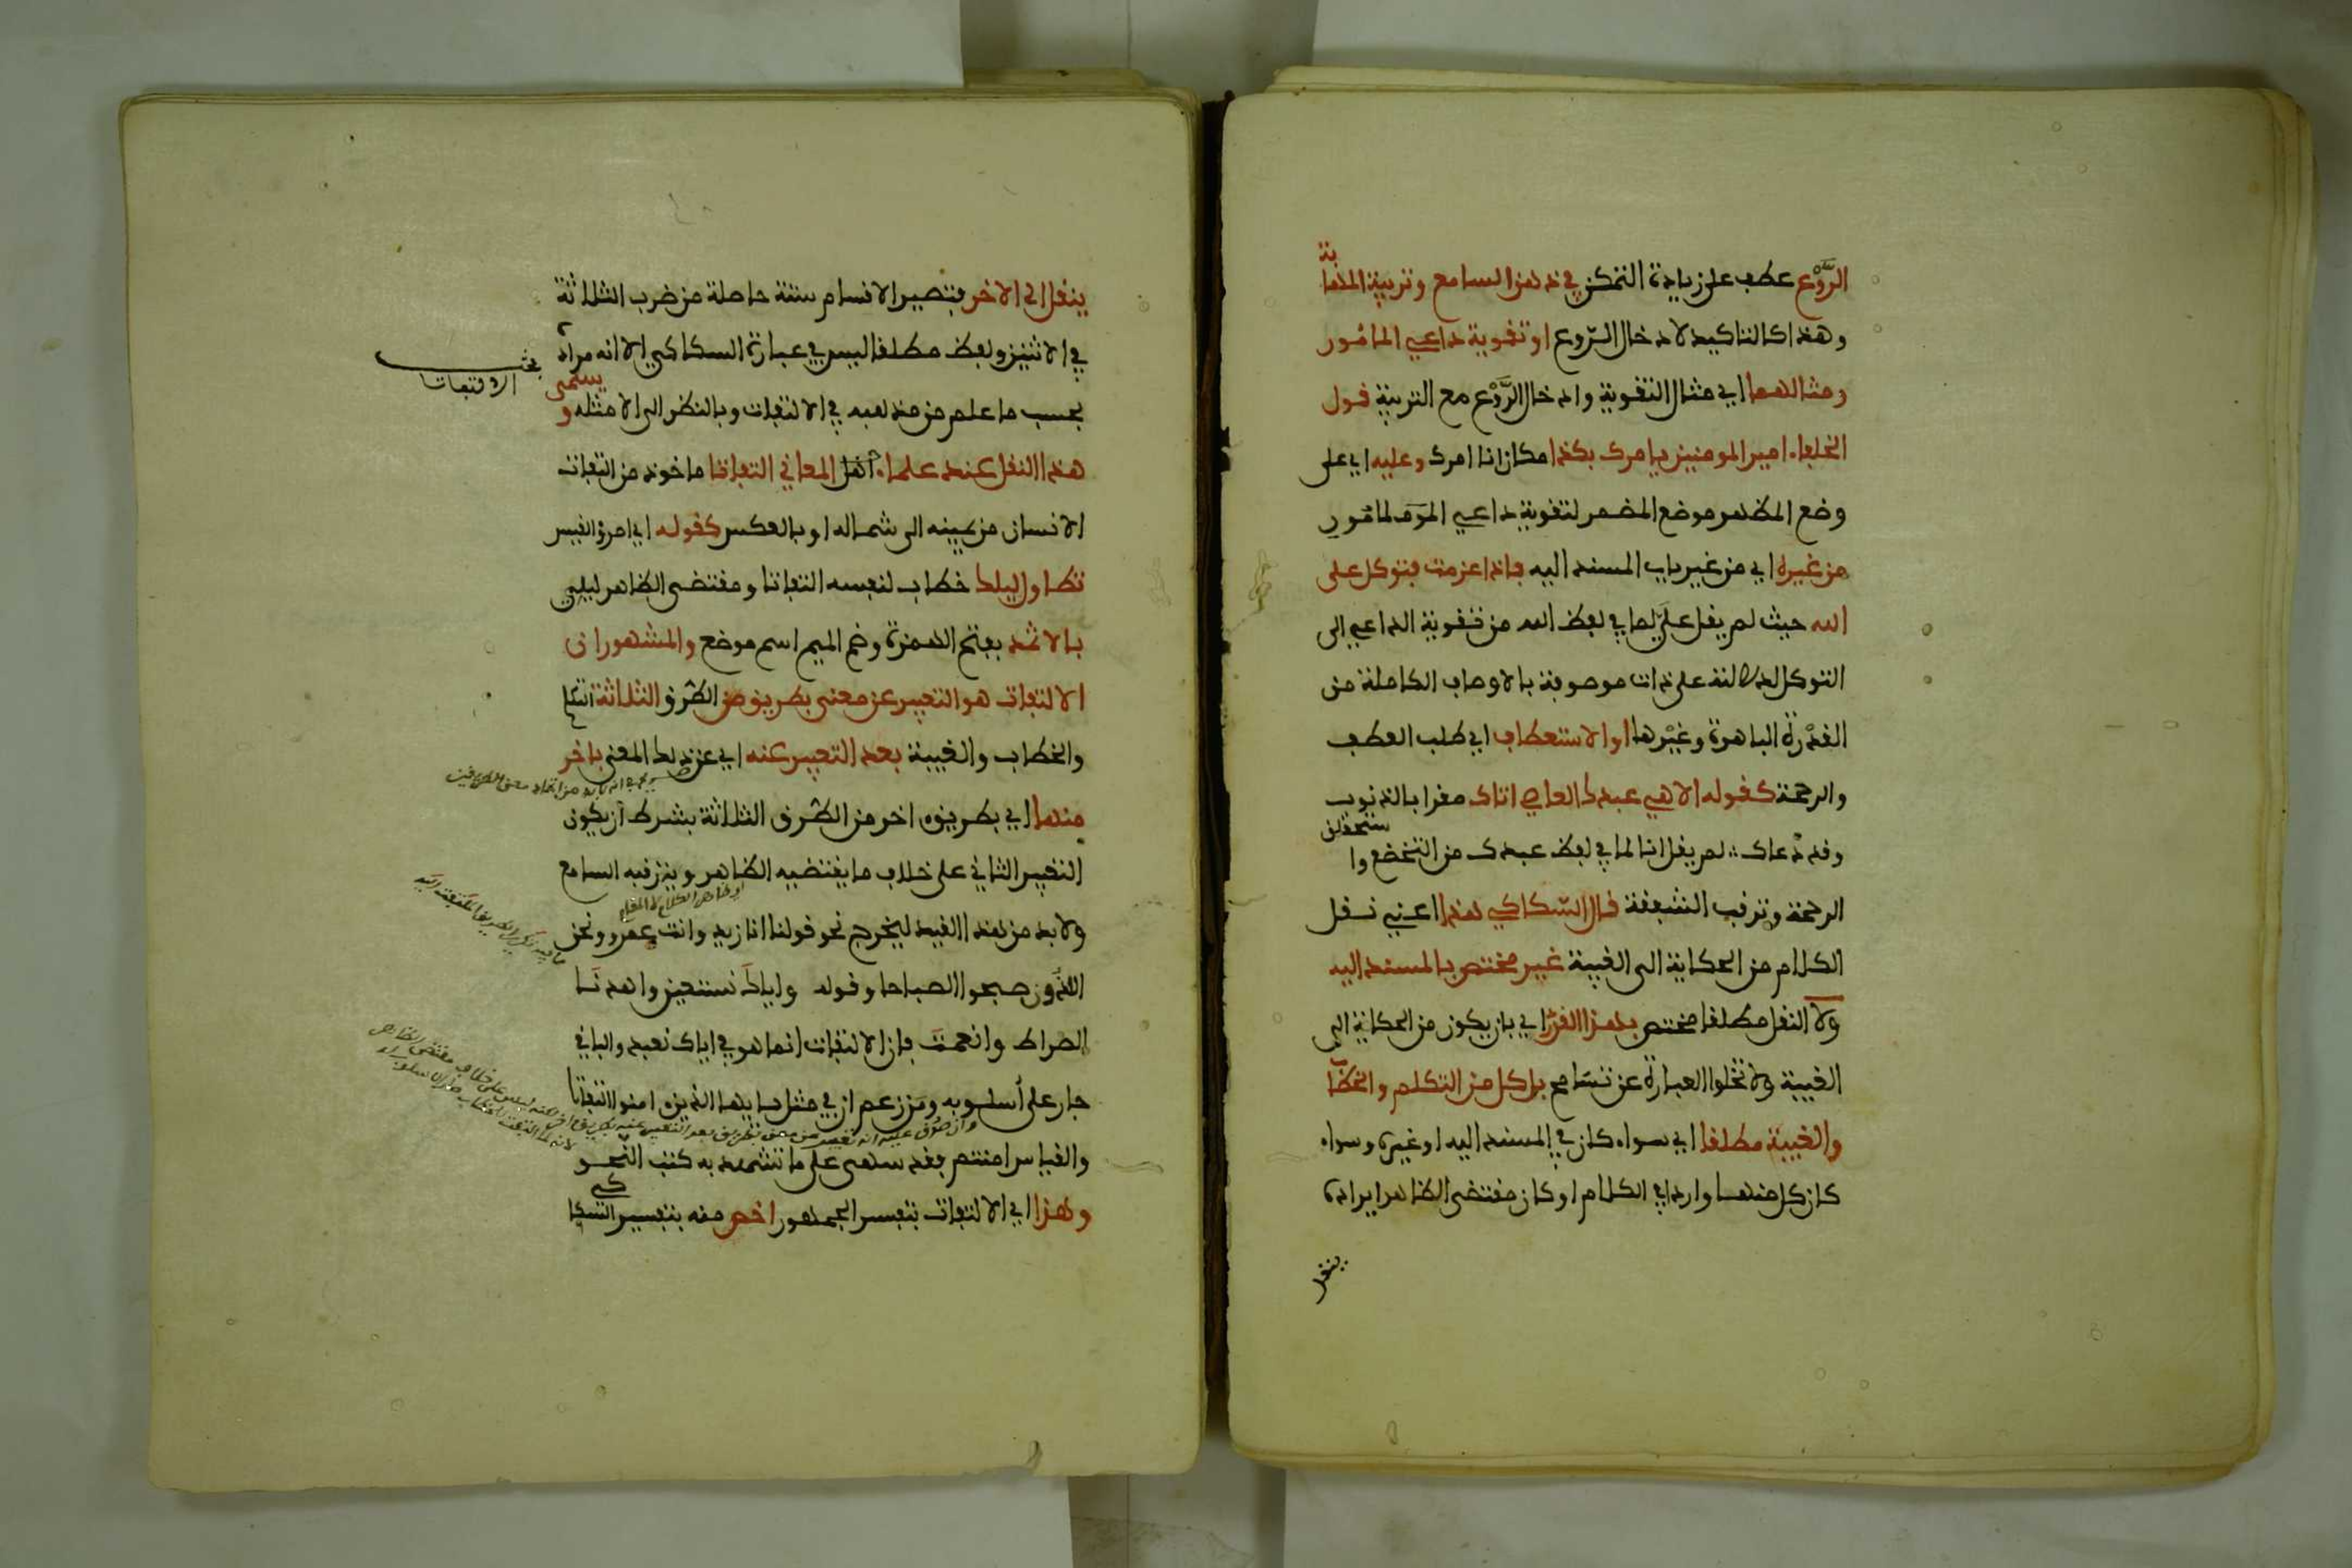 الرَّوْع عطف على زيادة التمكن في ذهن السامع وتربية المهابة
وهذا كالتاكيد لادخال الرّوع او تقوية داعي المامور
ومثالهما اي مثال التقوية وادخال الرَّوْع مع التربية قول
الخلفاء امير المومنين يامرك بكذا مكان انا امرك وعليه اي على
وضع المظهر موضع المضمر لتقوية داعي المامور
من غيره اي من غير باب المسند اليه فاذا عزمت فتوكل على
الله حيث لم يقل عليّ لما في لفظ الله من تقوية الداعي الى
التوكل لدلالته على ذات موصوفة بالاوصاف الكاملة من
القدْرة الباهرة وغيْرها او الاستعطاف اي طلب العطف
والرحمة كقوله الاهي عبدك العاصي اتاك مقرا بالذنوب
وقد دْعاك ∴ لم يقل انا لما في لفظ عبدك من التخضع واستحقاق
الرحمة وترقب الشفقة قال السّكاكي هذا اعني نقل
الكلام من الحكاية الى الغيبة غير مختص بالمسند اليه
ولا النقل مطلقا مختص بهذا القدْر اي بان يكون من الحكاية الى
الغيبة ولا تخلوا العبارة عن تسَامح بل كل من التكلم والخطاب
والغيبة مطلقا اي سواء كان في المسند اليه او غيره وسواء
كان كل منهما واردا في الكلام او كان مقتضى الظاهر ايراده
ينقل
ينقل الى الاخر فتصير الاقسام ستة حاصلة من ضرب الثلاثة
في الاثنين ولفظ مطلقا ليس في عبارة السكاكي الا انه مراده
بحث
الالتفات
بحسب ما علم من مذهبه في الالتفات وبالنظر الى الامثله ويسمى
هذا النقل عند علماء اهل المعاني التفاتا ماخوذ من التفات
الانسان من يمينه الى شماله او بالعكس كقوله اي امرؤ القيس
تطاول ليلك خطاب لنفسه التفاتا ومقتضى الظاهر ليلي
بالاثمد بفتح الهمزة وضم الميم اسم موضع والمشهور ان
الالتفات هو التعبير عن معنى بطريق من الطرق الثلاثة التكلم
والخطاب والغيبة بعد التعبير عنه اي عن ذلك المعنى باخر
منها اي بطريق اخر من الطرق الثلاثة بشرط ان يكون
التعبير الثاني على خلاف ما يقتضيه الظاهر ويترقبه السامع
ولابد من هذا القيد ليخرج نحو قولنا انا زيد وانت عمرو ونحن
اللذون صبحوا الصباحا وقوله واياك نستعين واهدنا
الصراط وانعمت فان الالتفات انما هو في اياك نعبد والباقي
جار على أسلوبه ومن زعم ان في مثل يا ايها الذين امنوا التفاتا
والقياس امنتم فقد سهى على ما تشهد به كتب النحو
وهذا اي الالتفات بتفسير الجمهور اخص منه بتفسير السكاكي